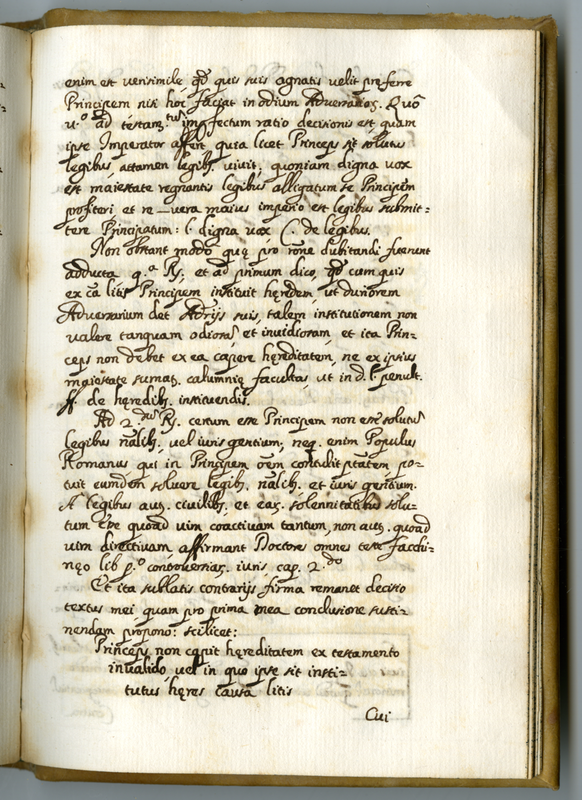 enim est verisimile qd quis suis agnatis velit preferre
Principem nisi hoc faciat in odium Adversarios. Quo
v.o ad testam.tum imperfectum ratio decisionis est quam
ipse Imperator affert, quia licet Princeps sit solutus
legibus, attamen legib. vivit, quoniam digna vox
est maiestate regnantis legibus alligatum se Principem
profiteri et re_vera maius imperio est legibus submit=
tere Principatum: l. digna vox C. de legibus.
Non obstant modo quę pro rone dubitandi fuerunt
adducta q.a Rs. et ad primum dico, qd cum quis
ex cã litis Principem instituit hęredem, ut duriorem
Adversarium det Adriss suis, talem institutionem non
valere tanquam odiosã et invidiosam, et ita Prin=
ceps non debet ex ea capere hęreditatem, ne ex ipsius
maiestate sumat. calumnię facultas ut in d. l. penult.
ff. de heredib. instituendis.
Ad 2.dum Rs. certum esse Principem non esse solutũ
legibus nãlib. vel iuris gentium, neq. enim Populus
Romanus qui in Principem oem contulit ptatem po=
tuit eumdem solvere legib. nãlib. et iuris gentium.
A legibus aut. civilib. et eas. solennitatibus solu=
tum esse quoad vim coactivam tantum, non aut. quoad
vim directivam affirmant Doctores omnes teste facchi=
nęo lib p.o controversias. iuris cap. 2.do
Et ita sublatis contrarijs firma remanet decisio
textus mei quam pro prima mea conclusione susti=
nendam propono: scilicet:
Princeps non capit hęreditatem ex testamento
invalido vel in quo ipse sit insti=
tutus hęres causa litis
Cui